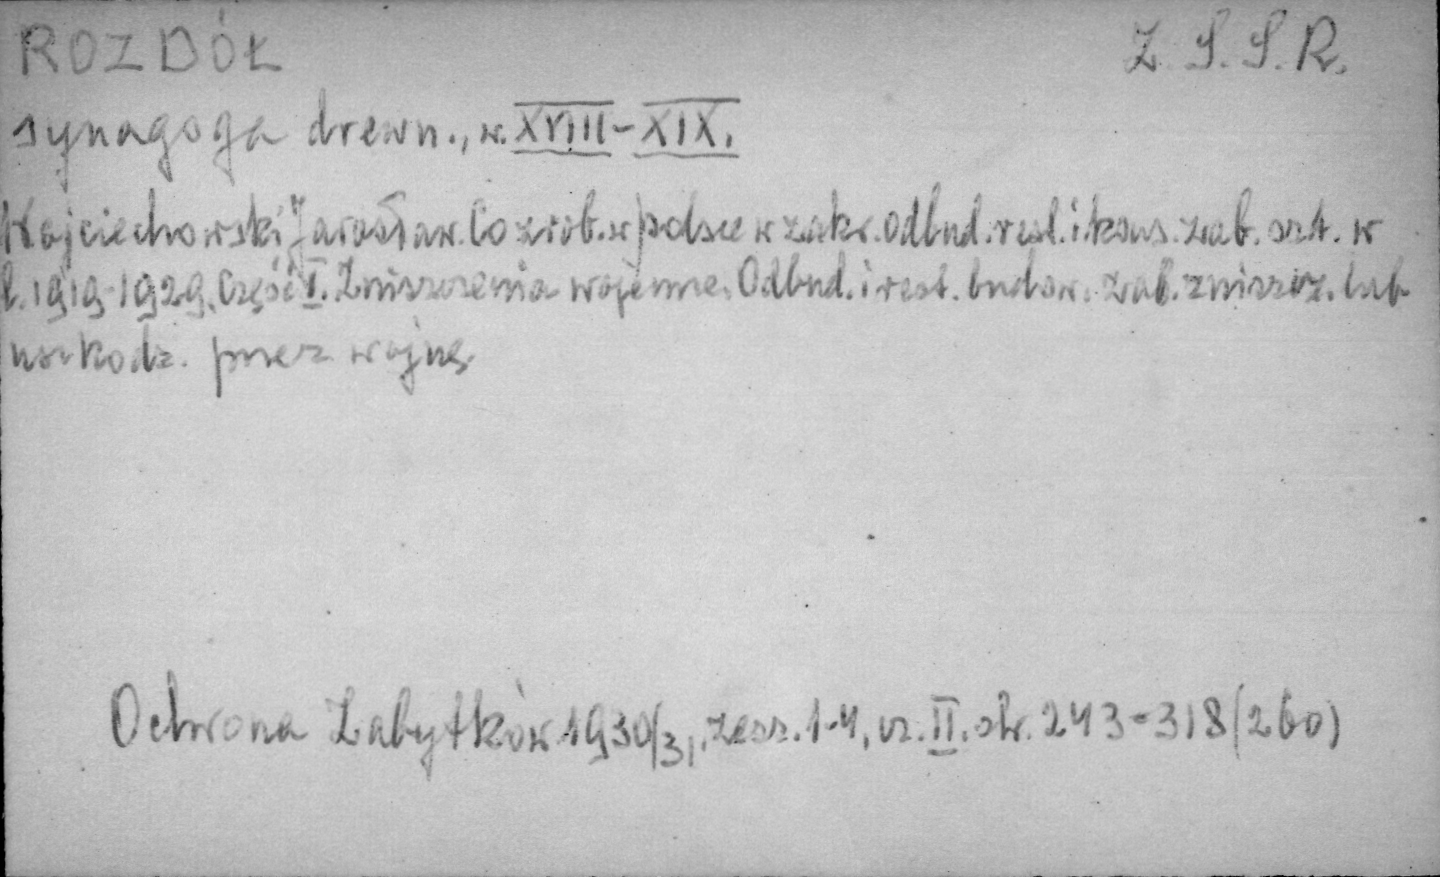 ROZDÓŁ Z.S.S.R.
synagoga drewn., w. XVIII-XIX.
Wojciechowski Jarosław. Co zrob. w Polsce w zakr. odbud. rest. i kons. zab. szt. w
l. 1919-1929. Część I. Zniszczenia wojenne. Odbud. i rest. budow. zab. zniszcz. lub
uszkodz. przez wojnę.
Ochrona Zabytków 1930/31, zesz. 1-4, cz. II. str. 243-318 (260)